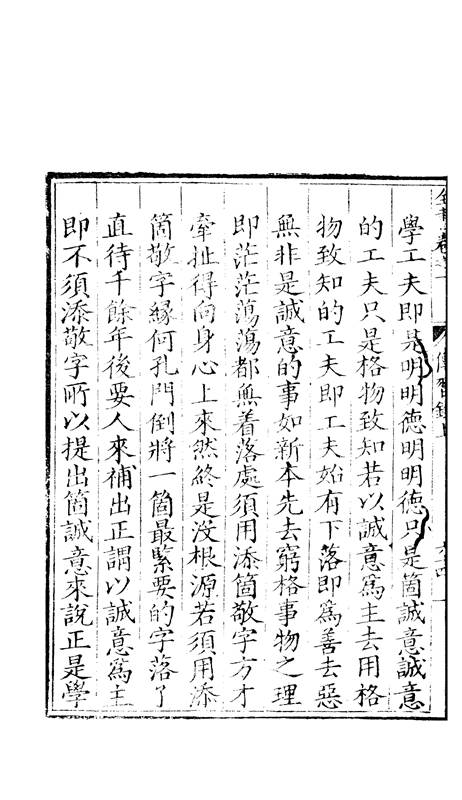 傳習錄上
學工夫即是明明德明明德只是箇誠意誠意
的工夫只是格物致知若以誠意爲主去用格
物致知的工夫即工夫始有下落即爲善去惡
無非是誠意的事如新本先去窮格事物之理
即茫茫蕩蕩都無着落處須用添箇敬字方才
牽扯得向身心上來然終是没根源若須用添
箇敬字縁何孔門倒將一箇最緊要的字落了
直待千餘年後要人來補出正謂以誠意爲主
即不須添敬字所以提出箇誠意來說正是學